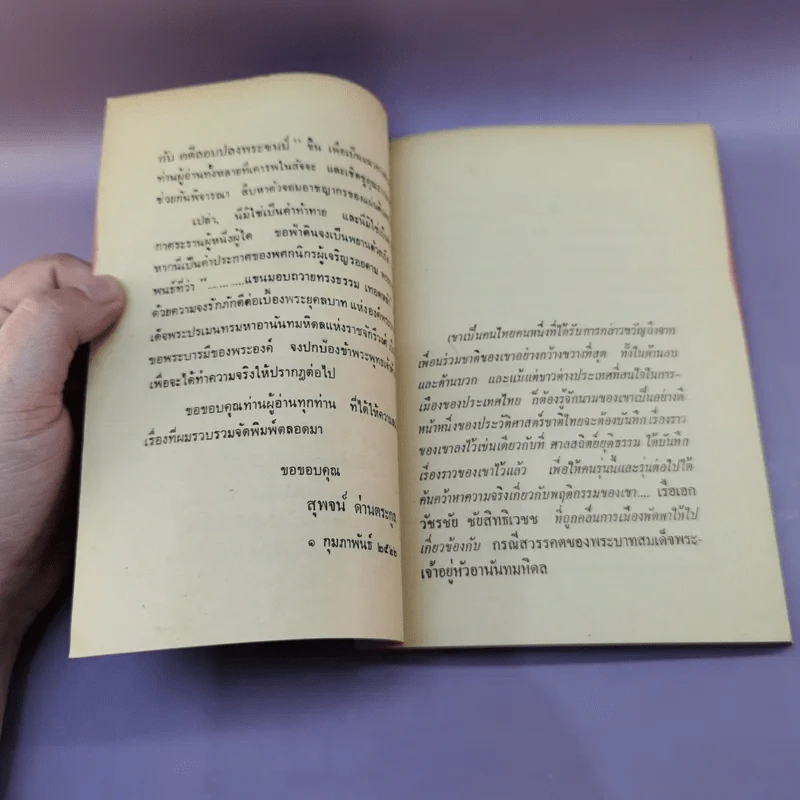 กับ คดีลอบปลงพระชนม์ " ขึ้น เพื่อเป็น
ท่านผู้อ่านทั้งหลายที่เคารพในสัจจะ และเชิดชู
ช่วยกันพิจารณา สืบหาตัวจอมอาชญากรของแผ่นดิน
เปล่า, นี่มิใช่เป็นคำท้าทาย และนี่มิใช่เป็น
กาศระรานผู้หนึ่งผู้ใด ขอฟ้าดินจงเป็นพยานด้วย
หากนี่เป็นคำประกาศของพสกนิกรผู้เจริญรอยตาม
พนธ์ที่ว่า "..........แขนมอบถวายทรงธรรม เทอดหล้า
ด้วยความจงรักภักดีต่อเบื้องพระยุคลบาท แห่งองค์
เด็จพระปรเมนทรมหาอานันทมหิดลแห่งราชจักรีวงศ์
ขอพระบารมีของพระองค์ จงปกป้องข้าพระพุทธเจ้า
เพื่อจะได้ทำความจริงให้ปรากฎต่อไป
ขอขอบคุณท่านผู้อ่านทุกท่าน ที่ได้ให้ความ
เรื่องที่ผมรวบรวมจัดพิมพ์ตลอดมา
ขอขอบคุณ
สุพจน์ ด่านตระกูล
๑ กุมภาพันธ์ ๒๕๒๒
เขาเป็นคนไทยคนหนึ่งที่ได้รับการกล่าวขวัญถึงจาก
เพื่อนร่วมชาติของเขาอย่างกว้างขวางที่สุด ทั้งในด้านลบ
และด้านบวก และแม้แต่ชาวต่างประเทศที่สนใจในการ-
เมืองของประเทศไทย ก็ต้องรู้จักนามของเขาเป็นอย่างดี
หน้าหนึ่งของประวัติศาสตร์ชาติไทยจะต้องบันทึกเรื่องราว
ของเขาลงไว้เช่นเดียวกับที่ ศาลสถิตย์ยุติธรรม ได้บันทึก
เรื่องราวของเขาไว้แล้ว เพื่อให้คนรุ่นนี้และรุ่นต่อไปได้
ค้นคว้าหาความจริงเกี่ยวกับพฤติกรรมของเขา.... เรือเอก
วัชรชัย ชัยสิทธิเวชช ที่ถูกคลื่นการเมืองพัดพาให้ไป
เกี่ยวข้องกับ กรณีสวรรคตของพระบาทสมเด็จพระ-
เจ้าอยู่หัวอานันทมหิดล